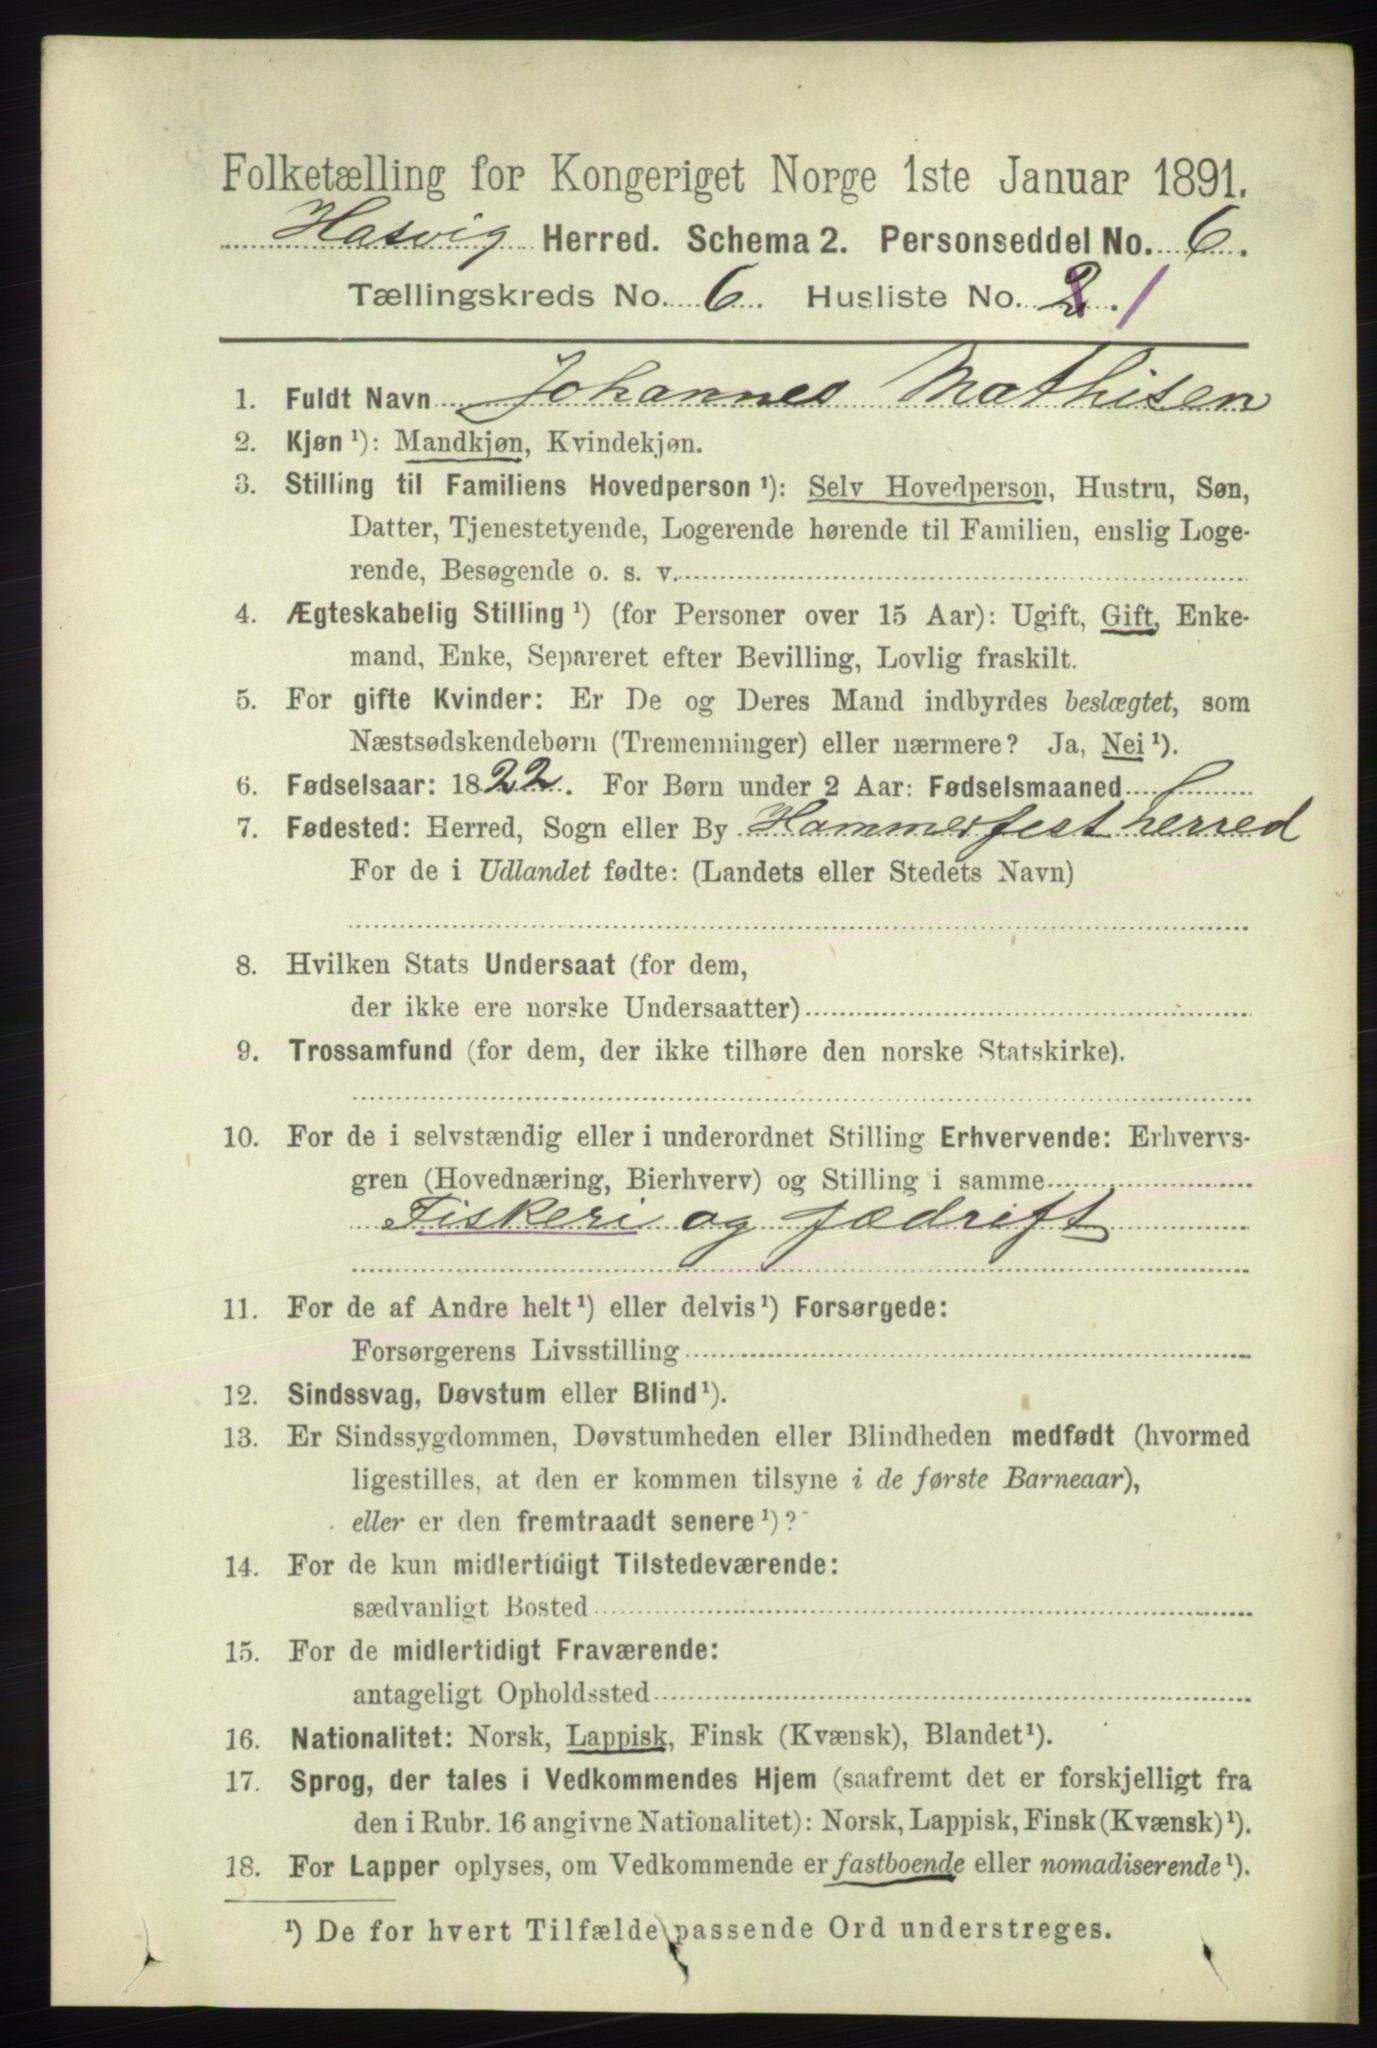 Folketælling for Kongeriget Norge 1ste Januar 1891.
Hasvig Herred. Schema 2. Personseddel No. 6.
Tællingskreds No. 6. Husliste No. 2. 1
1. Fuldt Navn Johannes Mathisen
2. Kjøn ¹): Mandkjøn, Kvindekjøn.
3. Stilling til Familiens Hovedperson ¹): Selv Hovedperson, Hustru, Søn,
Datter, Tjenestetyende, Logerende hørende til Familien, enslig Loge-
rende, Besøgende o. s. v.
4. Ægteskabelig Stilling ¹) (for Personer over 15 Aar): Ugift, Gift, Enke-
mand, Enke, Separeret efter Bevilling, Lovlig fraskilt.
5. For gifte Kvinder: Er De og Deres Mand indbyrdes beslægtet, som
Næstsødskendebørn (Tremenninger) eller nærmere? Ja, Nei ¹).
6. Fødselsaar: 1822. For Børn under 2 Aar: Fødselsmaaned
7. Fødested: Herred, Sogn eller By Hammerfest herred
For de i Udlandet fødte: (Landets eller Stedets Navn)
8. Hvilken Stats Undersaat (for dem,
der ikke ere norske Undersaatter)
9. Trossamfund (for dem, der ikke tilhøre den norske Statskirke).
10. For de i selvstændig eller i underordnet Stilling Erhvervende: Erhvervs-
gren (Hovednæring, Bierhverv) og Stilling i samme
Fiskeri og fædrift
11. For de af Andre helt ¹) eller delvis ¹) Forsørgede:
Forsørgerens Livsstilling
12. Sindssvag, Døvstum eller Blind ¹).
13. Er Sindssygdommen, Døvstumheden eller Blindheden medfødt (hvormed
ligestilles, at den er kommen tilsyne i de første Barneaar),
eller er den fremtraadt senere ¹)?
14. For de kun midlertidigt Tilstedeværende:
sædvanligt Bosted
15. For de midlertidigt Fraværende:
antageligt Opholdssted
16. Nationalitet: Norsk, Lappisk, Finsk (Kvænsk), Blandet ¹).
17. Sprog, der tales i Vedkommendes Hjem (saafremt det er forskjelligt fra
den i Rubr. 16 angivne Nationalitet): Norsk, Lappisk, Finsk (Kvænsk) ¹).
18. For Lapper oplyses, om Vedkommende er fastboende eller nomadiserende ¹).
¹) De for hvert Tilfælde passende Ord understreges.